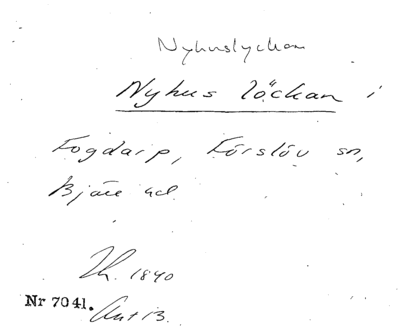 Nyhuslyckan
Nyhus löckan i
Fogdarp, Förslöv sn,
Bjäre hd.
Lh. 1840
Nr 7041.
Ant 13.